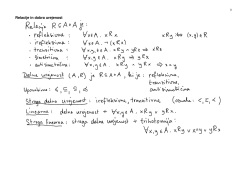 Relacije in delna urejenost
Relacija R ⊆ A×A je:
xRy :⇔ (x,y)∈R
- refleksivna : ∀x∈A. xRx
- irefleksivna : ∀x∈A. ¬(xRx)
- tranzitivna : ∀x,y,z∈A. xRy ∧ yRz ⇒ xRz
- simetrična : ∀x,y∈A. xRy ⇒ yRx
- antisimetrična : ∀x,y∈A. xRy ∧ yRx ⇒ x=y
Delna urejenost (A,R) je R⊆A×A, ki je : refleksivna,
tranzitivna,
antisimetrična
Stroga delna urejenost : irefleksivna, tranzitivna
Linearna : delna urejenost + ∀x,y∈A. xRy ∨ yRx.
Stroga linearna : stroga delna urejenost + trihotomija :
∀x,y∈A. xRy ∨ x=y ∨ yRx